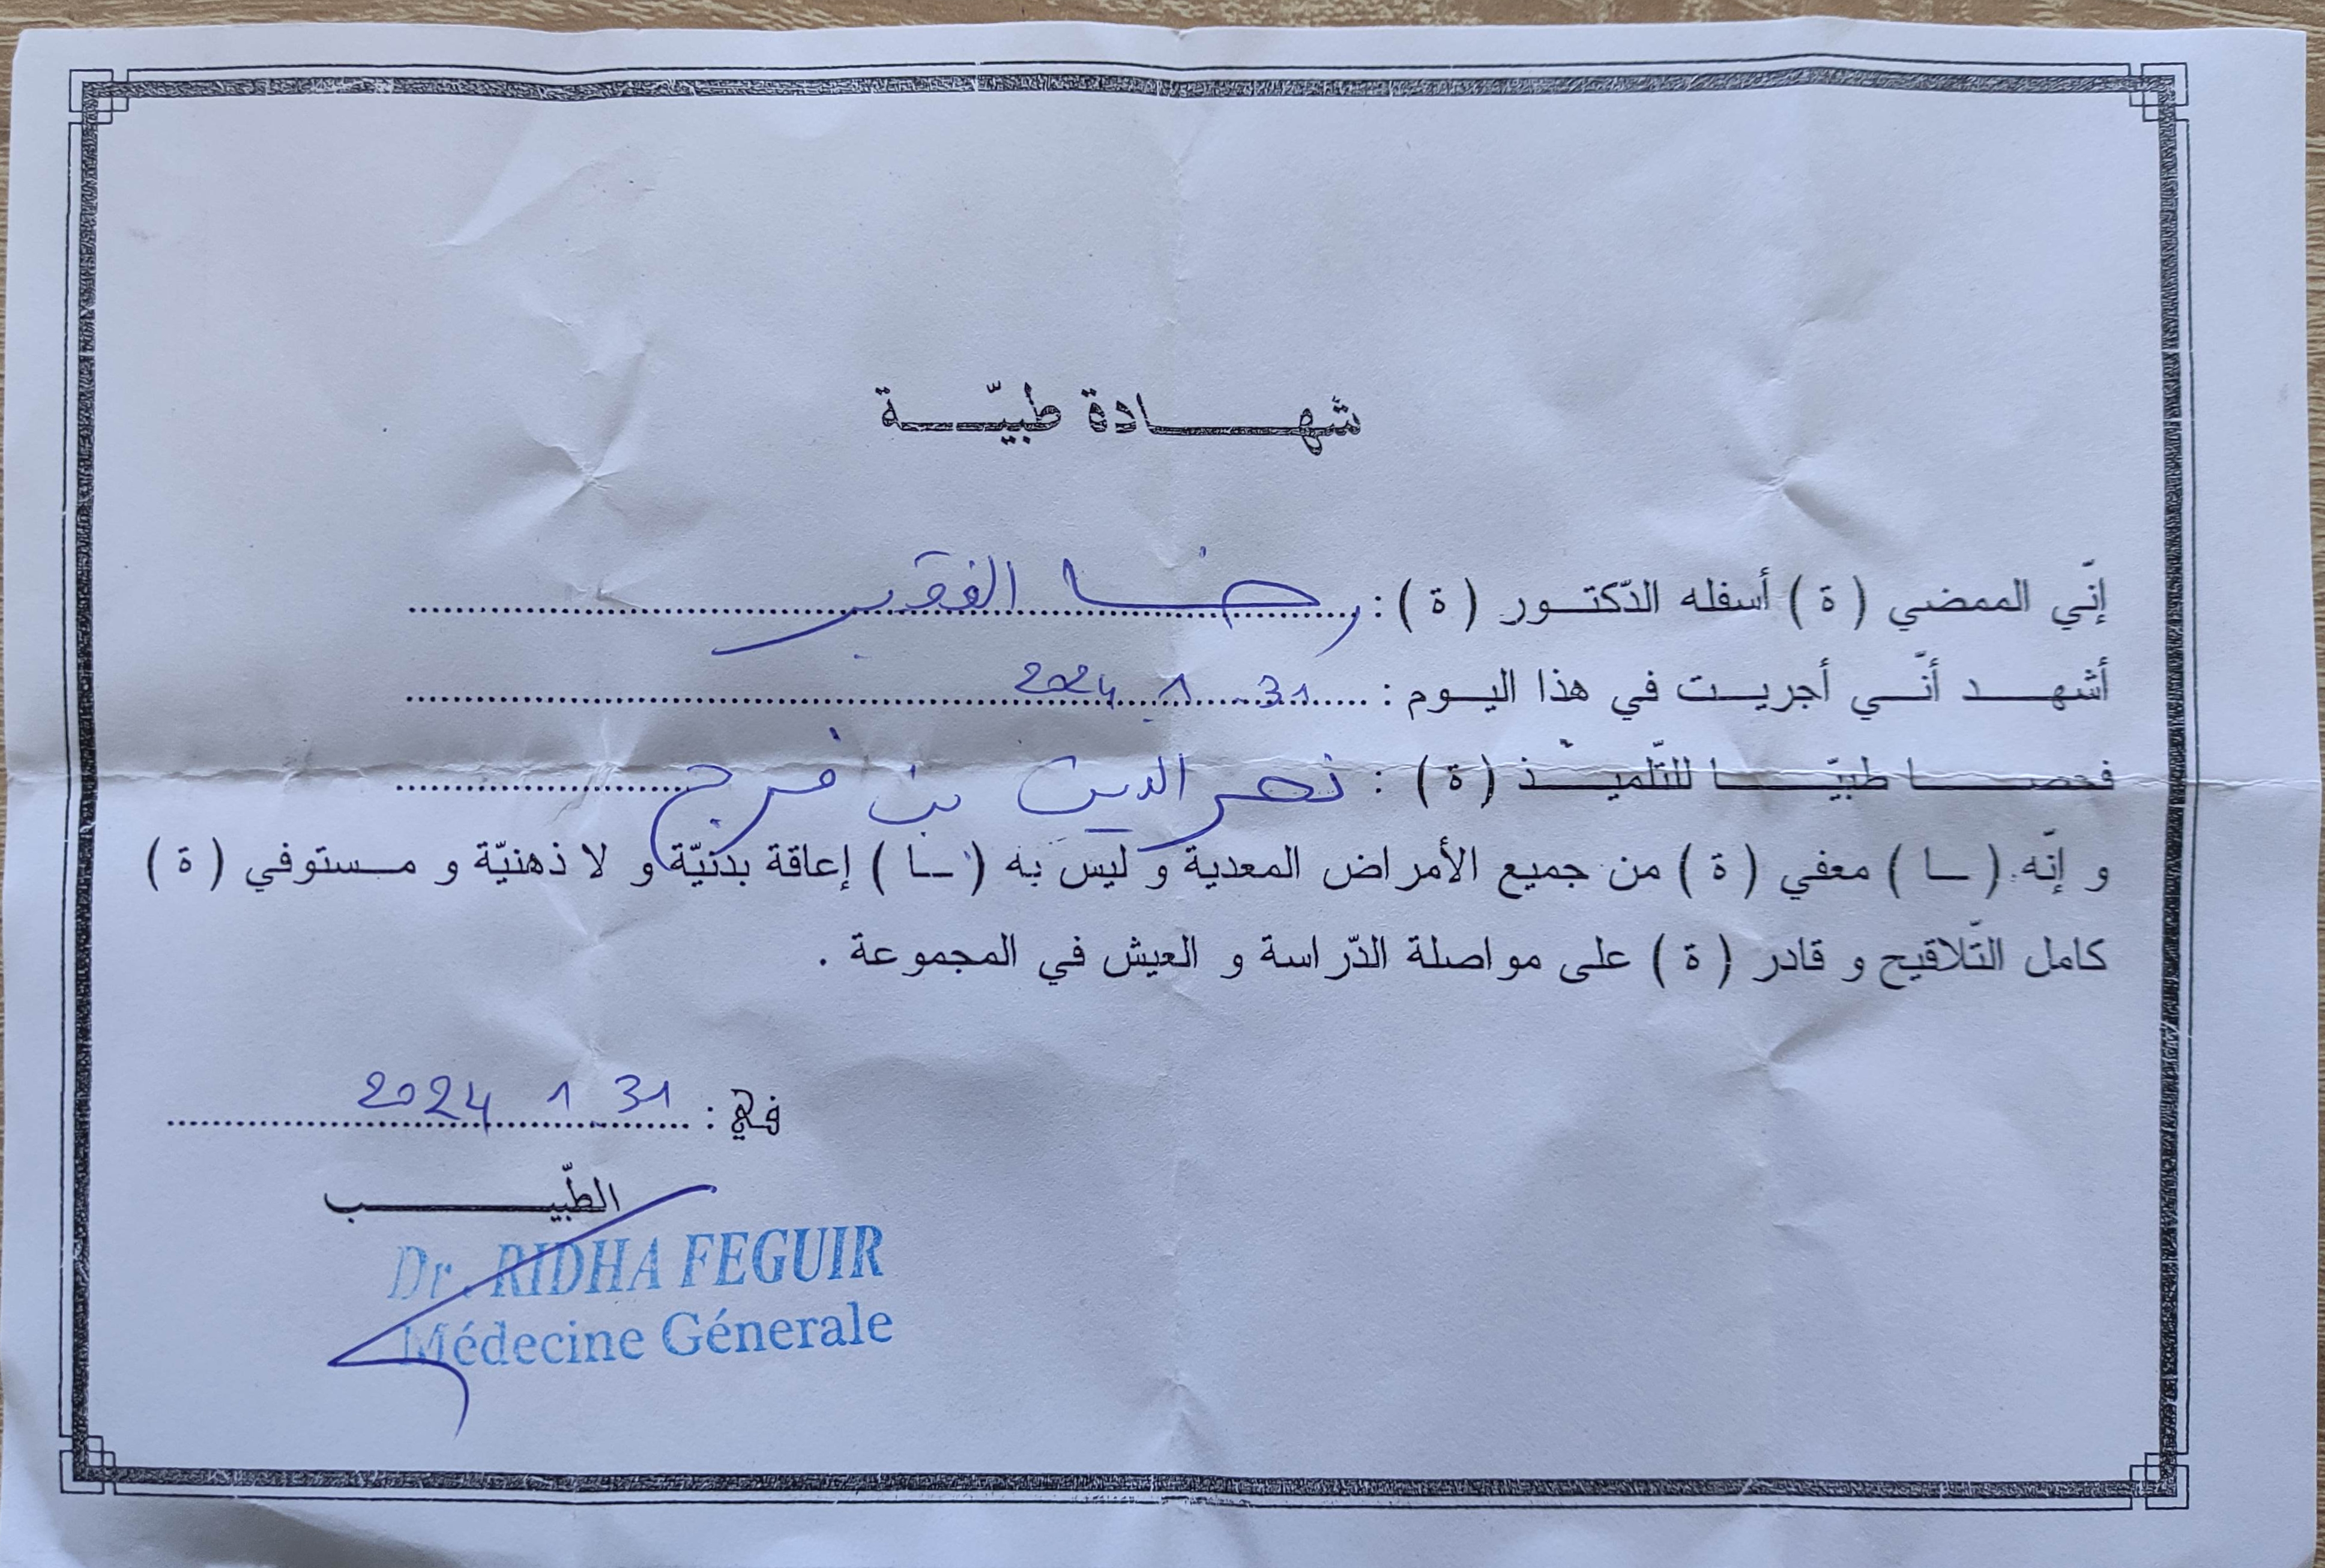 شهادة طبيّة
إنّي الممضي ( ة ) أسفله الدّكتور ( ة ) : رضا الفقير
أشهد أنّي أجريت في هذا اليوم : 31 1 2024
فحصا طبيّا للتّلميذ ( ة ) : نصر الدين بن فرج
و إنّه ( ـا ) معفي ( ة ) من جميع الأمراض المعدية و ليس به ( ـا ) إعاقة بدنيّة و لا ذهنيّة و مستوفي ( ة )
كامل التّلاقيح و قادر ( ة ) على مواصلة الدّراسة و العيش في المجموعة .
في : 31 1 2024
الطّبيب
Dr. RIDHA FEGUIR
Médecine Génerale